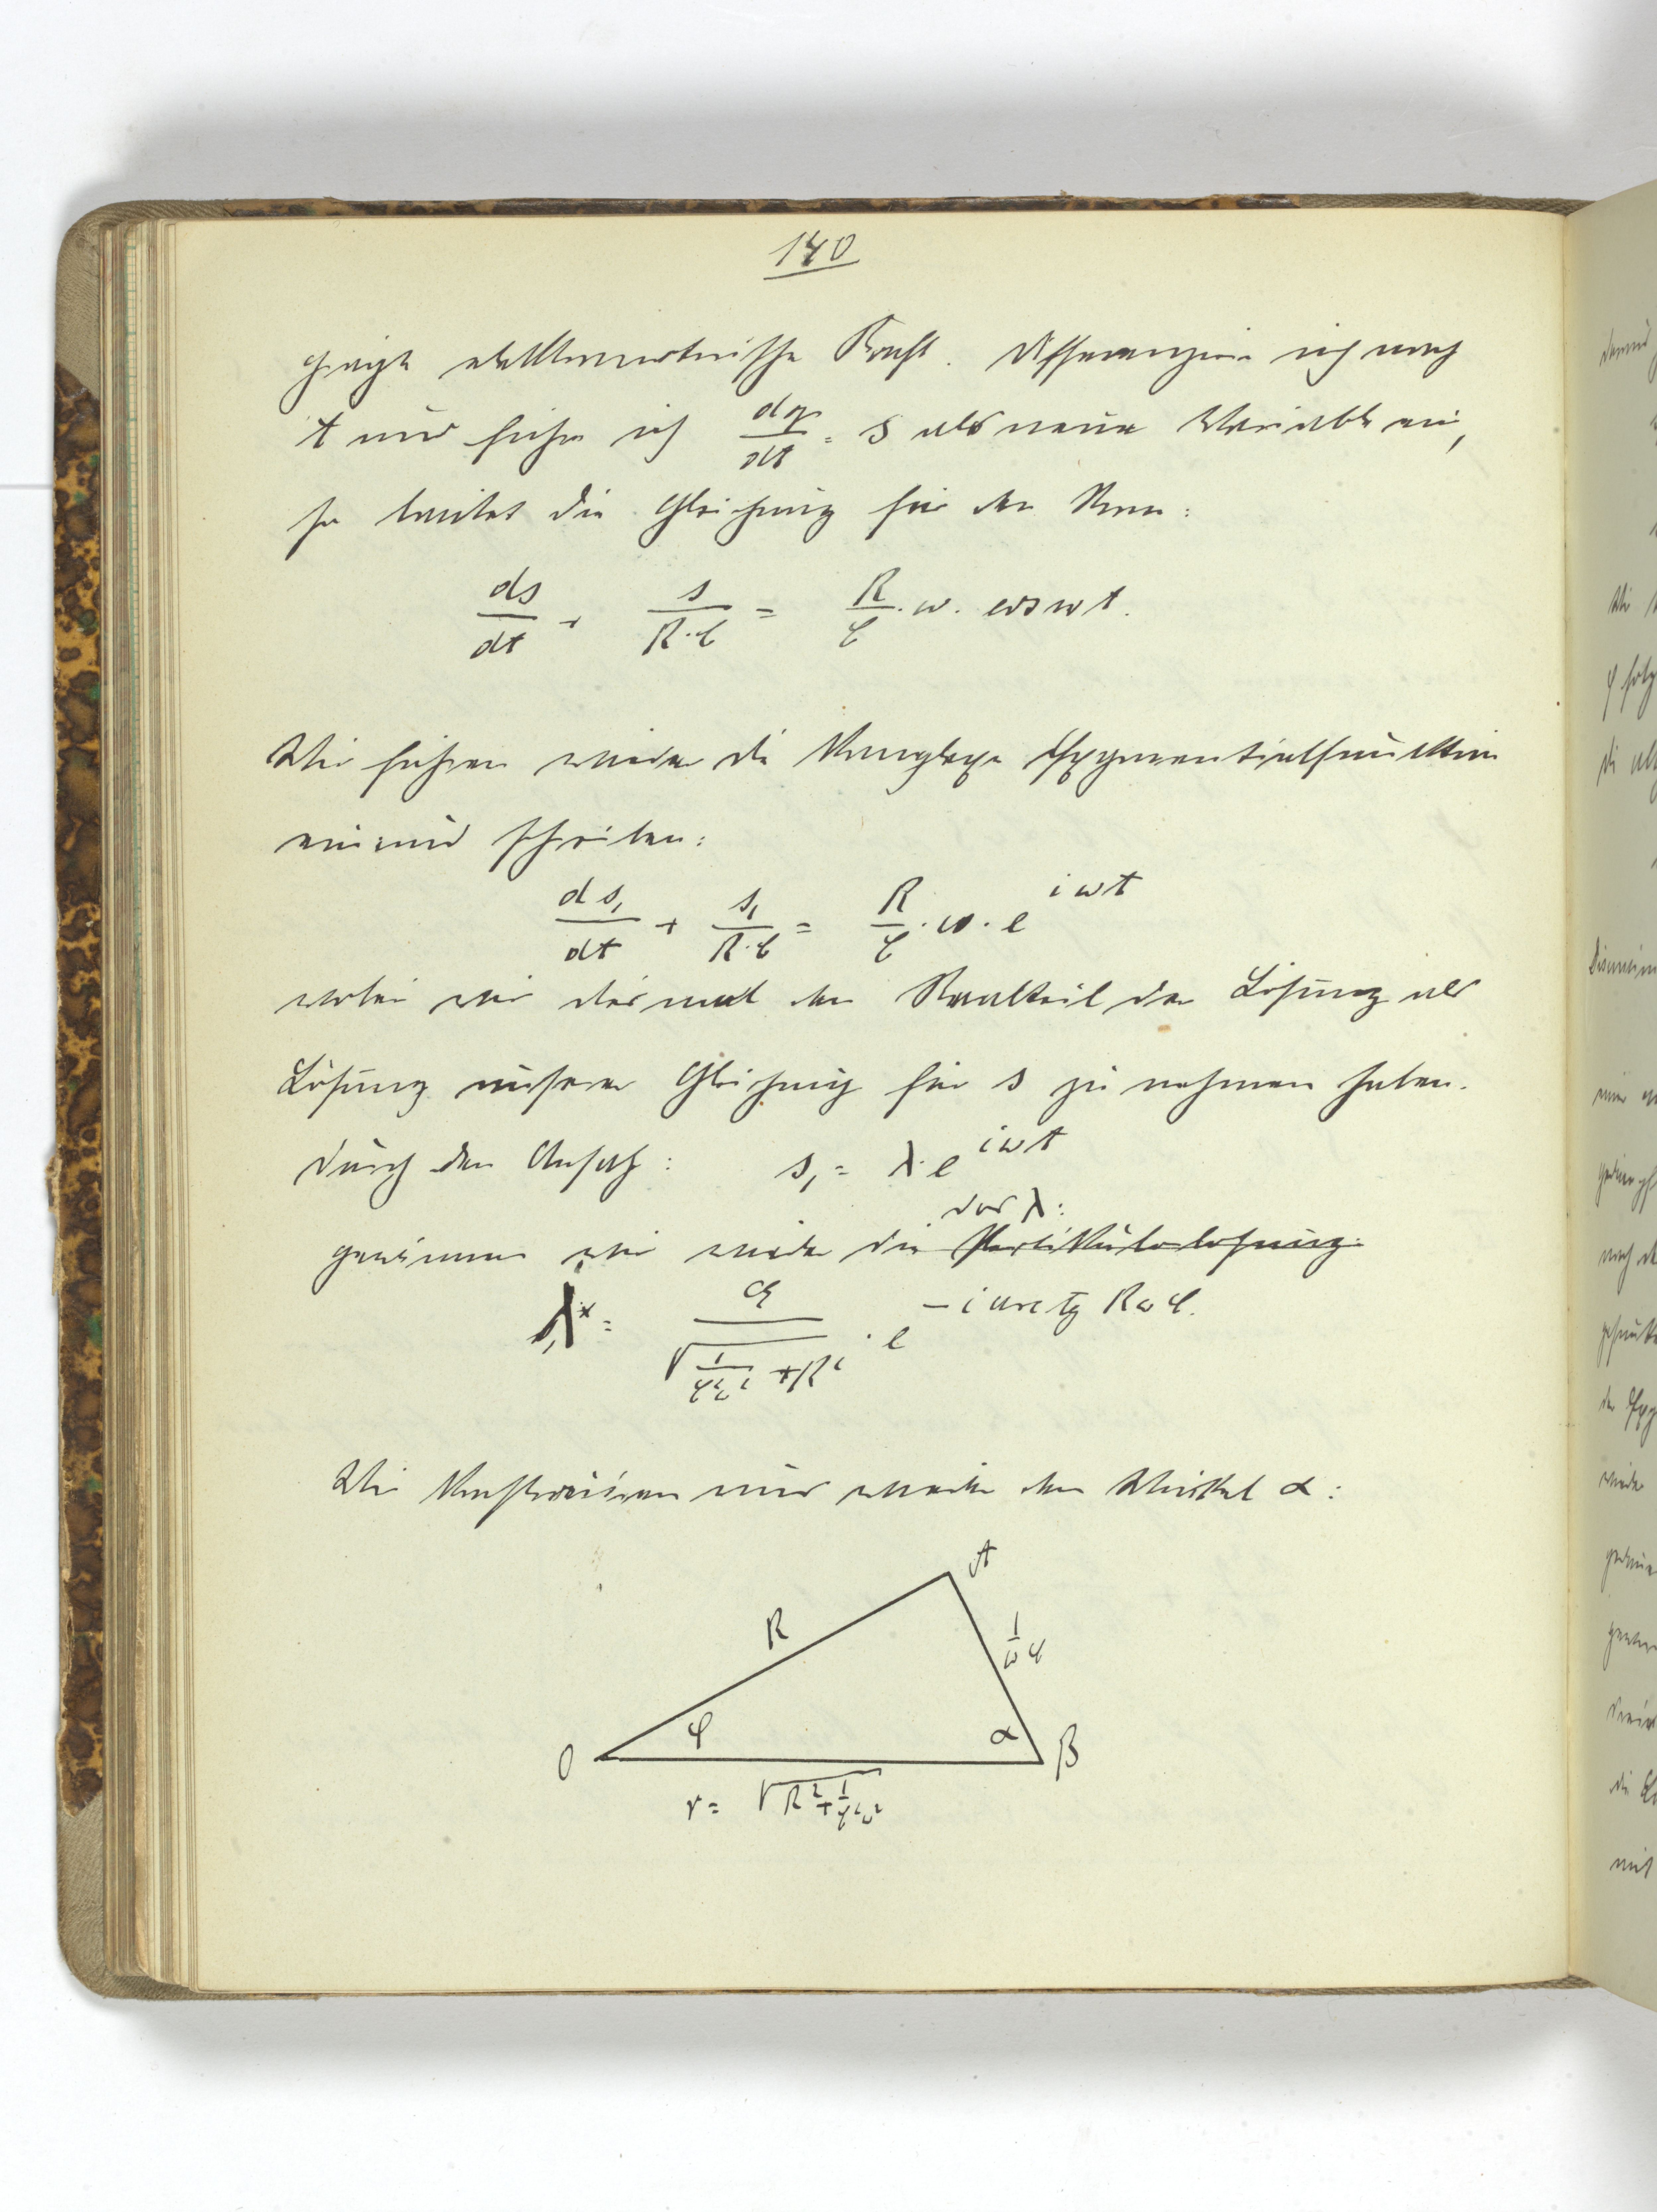 140
prägte elektromotorische Kraft. Differenziere ich nach
t und führe ich dq/dt = s als neue Variable ein,
so lautet die Gleichung für den Strom:
ds/dt + s/(R·C) = R/C · ω · cos ωt.
Wir führen wieder die komplexe Exponentialfunktion
ein und schreiben:
ds₁/dt + s₁/(R·C) = R/C · ω · e^{iωt}
wobei wir diesmal den Realteil der Lösung als
Lösung unserer Gleichung für s zu nehmen haben.
Durch den Ansatz: s₁ = λ·e^{iωt}
das λ:
gewinnen wir wieder die Partikulärlösung:
λ = / √(1/(C²ω²) + R²) · e^{-i arctg RωC}.
Wir konstruieren uns wieder den Winkel α:
A
R
1/ωC
φ
α
O
B
r = √(R² + 1/(C²ω²))